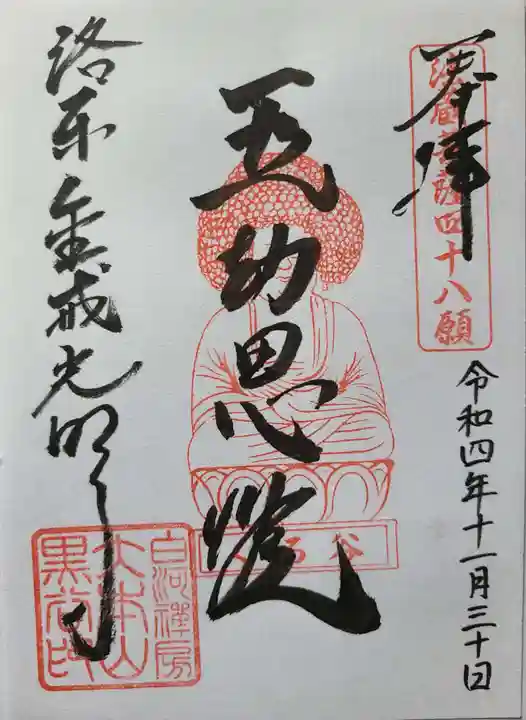 奉拝
法蔵菩薩四十八願
令和四年十一月三十日
五劫思惟
洛東 金戒光明寺
白河禪房
大本山
黒谷印